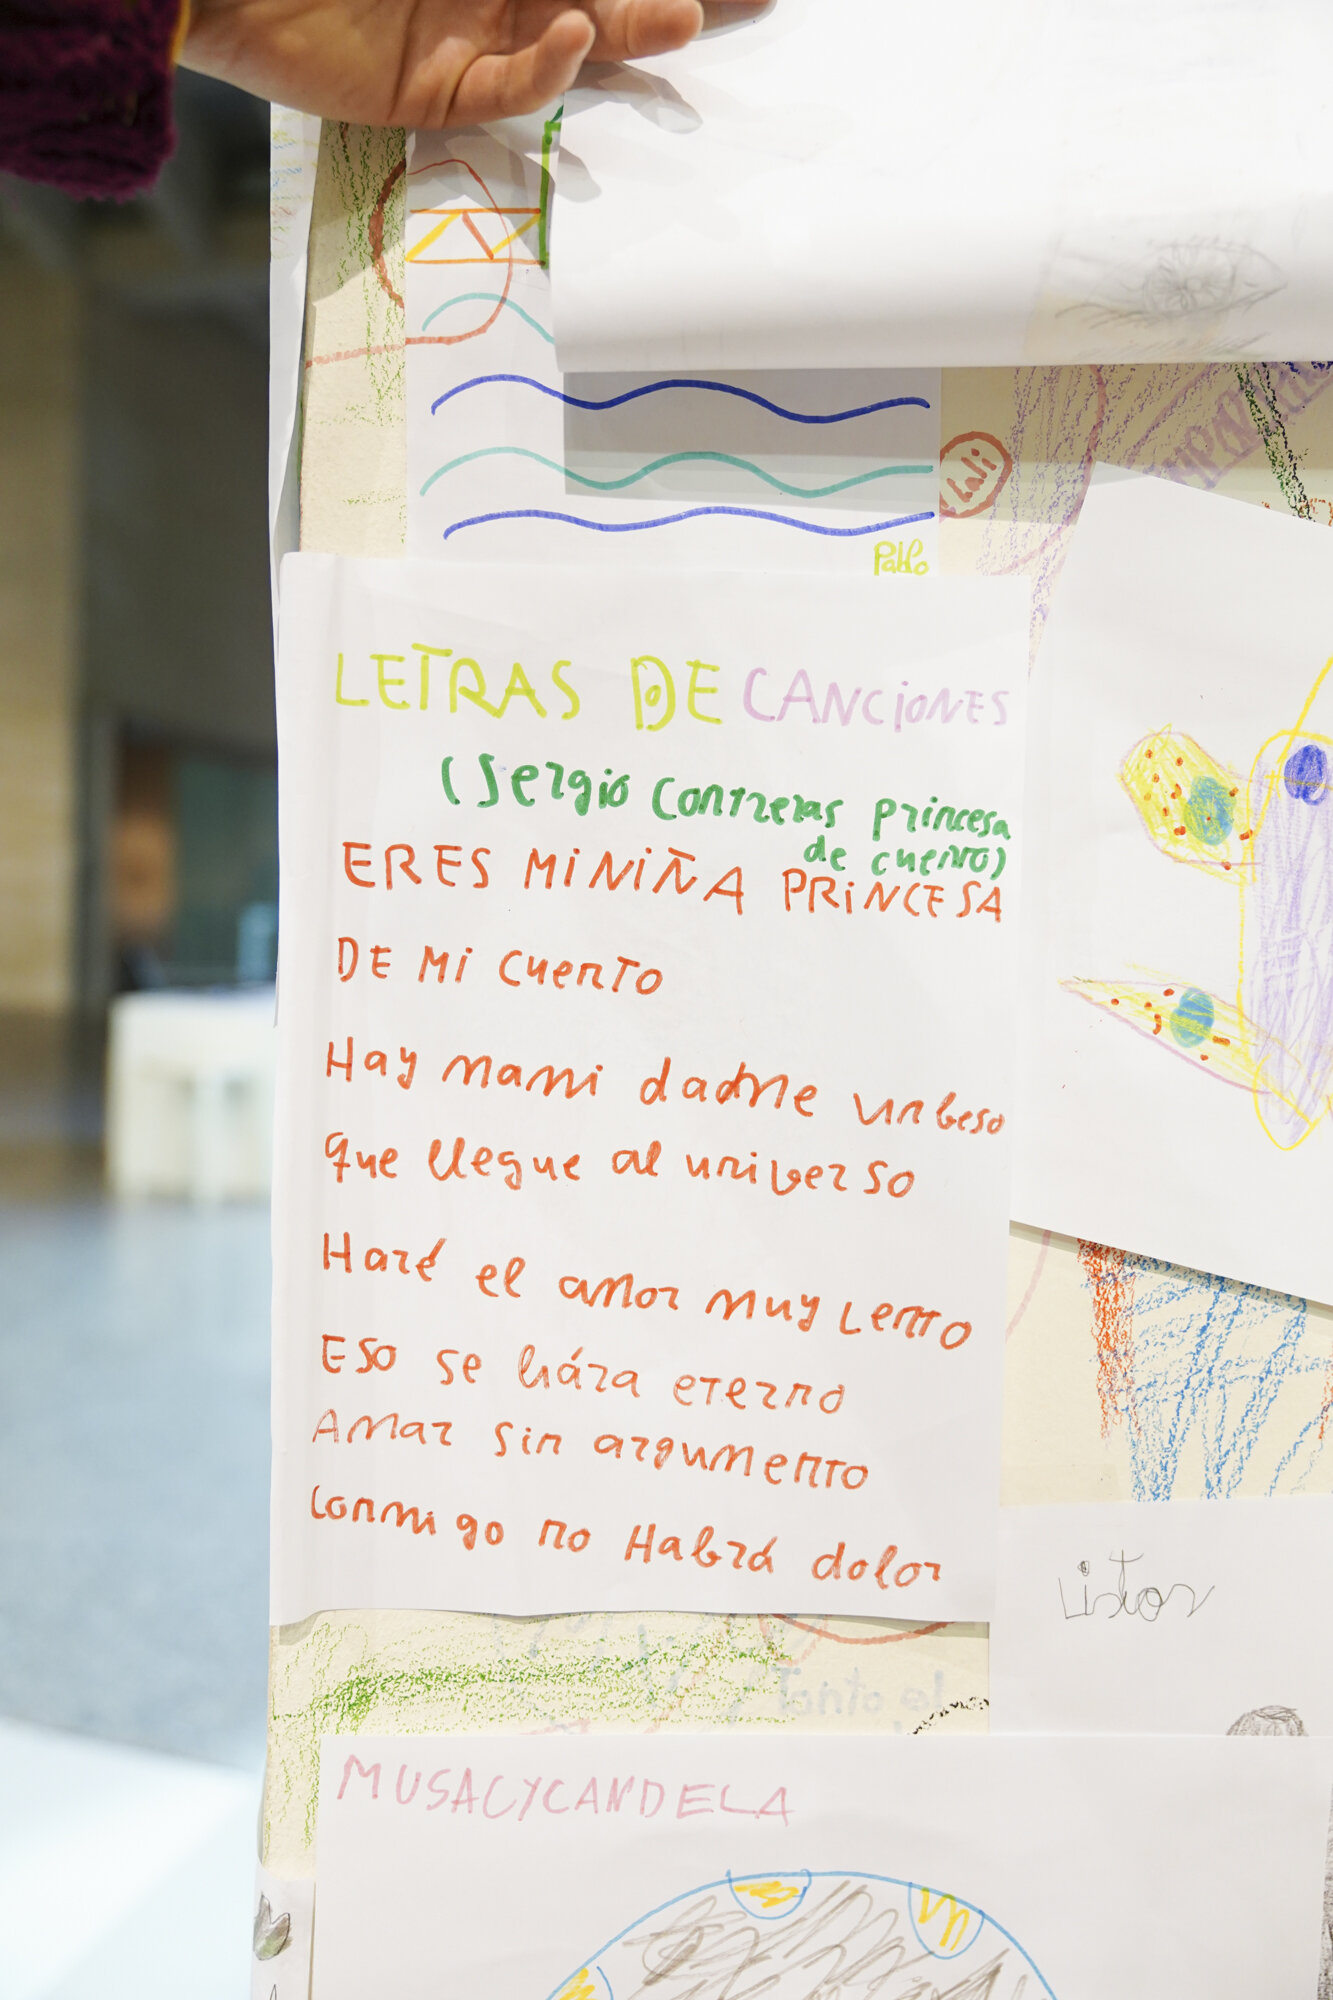 Lali
Pablo
LETRAS DE CANCIONES
(Sergio Contreras princesa
de cuento)
ERES MI NIÑA PRINCESA
DE MI CUENTO
Hay mami dadme un beso
que llegue al universo
Haré el amor muy lento
Eso se hára eterno
Amar sin argumento
conmigo no Habrá dolor
Listos
Tanto el
MUSACYCANDELA